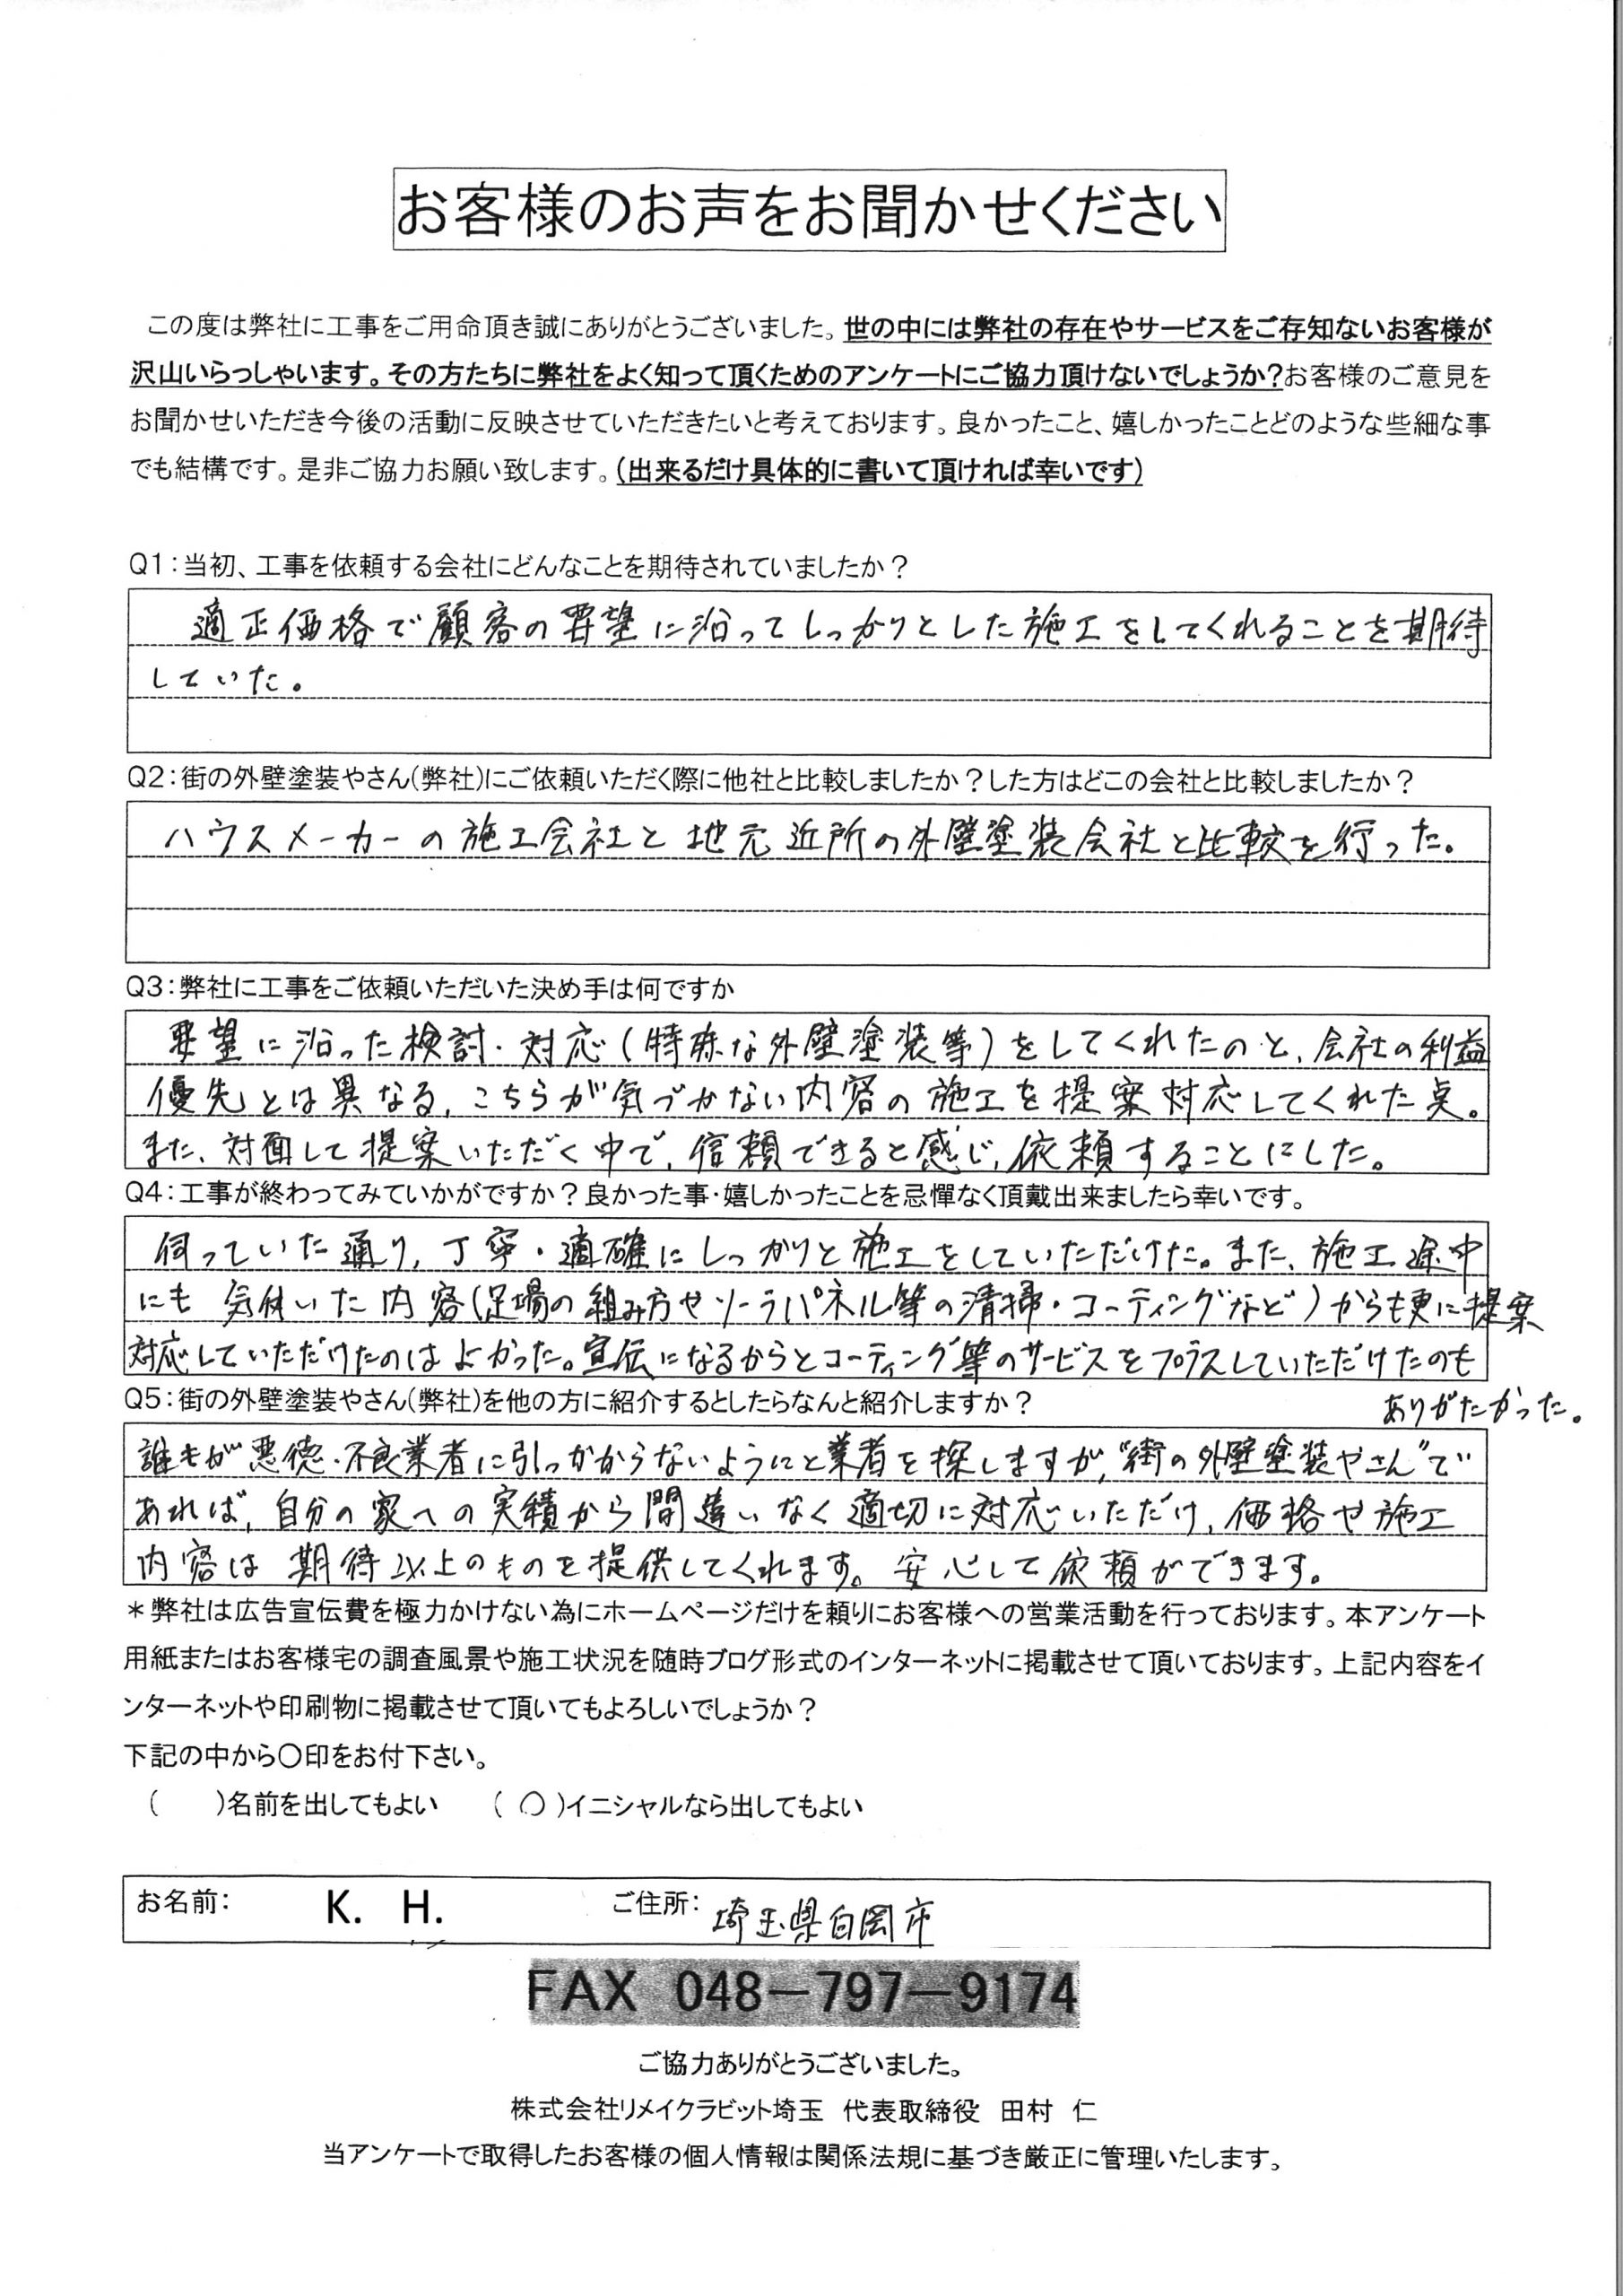 お客様のお声をお聞かせください
この度は弊社に工事をご用命頂き誠にありがとうございました。世の中には弊社の存在やサービスをご存知ないお客様が
沢山いらっしゃいます。その方たちに弊社をよく知って頂くためのアンケートにご協力頂けないでしょうか?お客様のご意見を
お聞かせいただき今後の活動に反映させていただきたいと考えております。良かったこと、嬉しかったことどのような些細な事
でも結構です。是非ご協力お願い致します。(出来るだけ具体的に書いて頂ければ幸いです)
Q1:当初、工事を依頼する会社にどんなことを期待されていましたか?
適正価格で顧客の要望に沿ってしっかりとした施工をしてくれることを期待
していた。
Q2:街の外壁塗装やさん(弊社)にご依頼いただく際に他社と比較しましたか?した方はどこの会社と比較しましたか?
ハウスメーカーの施工会社と地元近所の外壁塗装会社と比較を行った。
Q3:弊社に工事をご依頼いただいた決め手は何ですか
要望に沿った検討・対応(特殊な外壁塗装等)をしてくれたのと、会社の利益
優先とは異なる、こちらが気づかない内容の施工を提案対応してくれた点。
また、対面して提案いただく中で、信頼できると感じ、依頼することにした。
Q4:工事が終わってみていかがですか?良かった事・嬉しかったことを忌憚なく頂戴出来ましたら幸いです。
伺っていた通り、丁寧・適確にしっかりと施工をしていただけた。また、施工途中
にも気付いた内容(足場の組み方やソーラパネル等の清掃・コーティングなど)からも更に提案
対応していただけたのはよかった。宣伝になるからとコーティング等のサービスをプラスしていただけたのも
ありがたかった。
Q5:街の外壁塗装やさん(弊社)を他の方に紹介するとしたらなんと紹介しますか?
誰もが悪徳・不良業者に引っかからないようにと業者を探しますが、"街の外壁塗装やさん"で
あれば、自分の家への実績から間違いなく適切に対応いただけ、価格や施工
内容は期待以上のものを提供してくれます。安心して依頼ができます。
＊弊社は広告宣伝費を極力かけない為にホームページだけを頼りにお客様への営業活動を行っております。本アンケート
用紙またはお客様宅の調査風景や施工状況を随時ブログ形式のインターネットに掲載させて頂いております。上記内容をイ
ンターネットや印刷物に掲載させて頂いてもよろしいでしょうか?
下記の中から〇印をお付下さい。
( )名前を出してもよい (〇)イニシャルなら出してもよい
お名前: K. H. ご住所: 埼玉県白岡市
FAX 048－797－9174
ご協力ありがとうございました。
株式会社リメイクラビット埼玉 代表取締役 田村 仁
当アンケートで取得したお客様の個人情報は関係法規に基づき厳正に管理いたします。